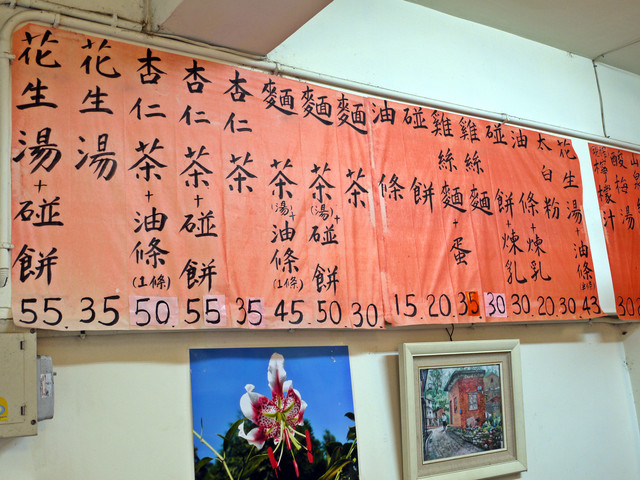 花生湯+碰餅 55.
花生湯 35.
杏仁茶+油條(1條) 50.
杏仁茶+碰餅 55.
杏仁茶 35
麵茶(湯)+油條(1條) 45.
麵茶(湯)+碰餅 50.
麵茶 30.
油條 15.
碰餅 20.
雞絲麵+蛋 35
雞絲麵 30
碰餅+煉乳 30.
油條+煉乳 20.
太白粉 30
花生湯+油條 43
檸檬汁 30
酸梅湯